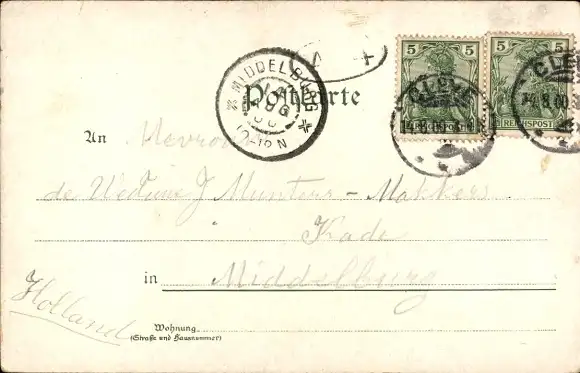 5 5 5 5
CLEVE CLEVE
8.00
REICHSPOST REICHSPOST
MIDDELBURG
AUG
Postkarte
An Mevrouw
de Weduwe J Munters - Makkers
Kade
in Middelburg
Holland
Wohnung
(Straße und Hausnummer)